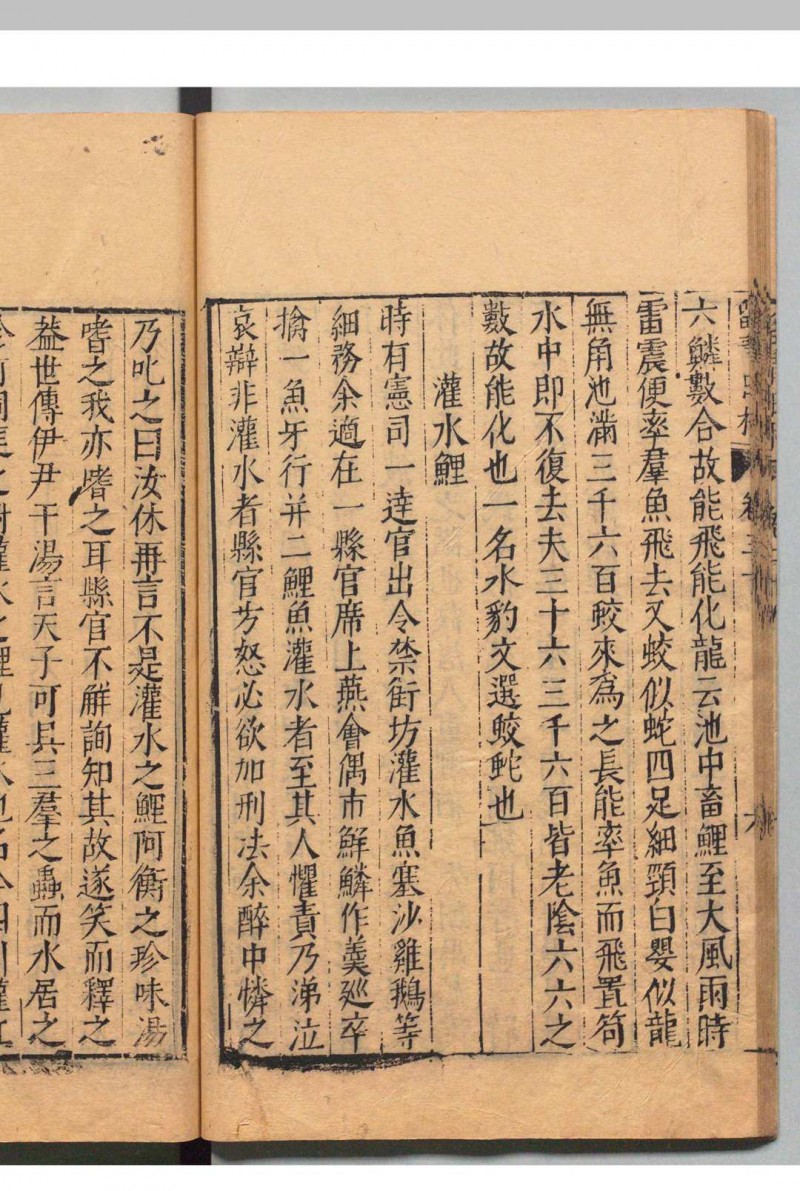 六鱗數合故能飛能化龍云池中畜鯉至大風雨時
雷震便率羣魚飛去又蛟似蛇四足細頸白嬰似龍
無角池滿三千六百蛟來為之長能率魚而飛置笱
水中即不復去夫三十六三千六百皆老陰六六之
數故能化也一名水豹文選蛟蛇也
灌水鯉
時有憲司一逹官出令禁街坊灌水魚塞沙雞鵝等
細務余適在一縣官席上燕會偶市鮮鱗作羹廵卒
擒一魚牙行并二鯉魚灌水者至其人懼責乃涕泣
哀辯非灌水者縣官方怒必欲加刑法余醉中憐之
乃叱之曰汝休再言不是灌水之鯉阿衡之珍味湯
嗜之我亦嗜之耳縣官不解詢知其故遂笑而釋之
葢世傳伊尹干湯言天子可具三羣之蟲而水居之